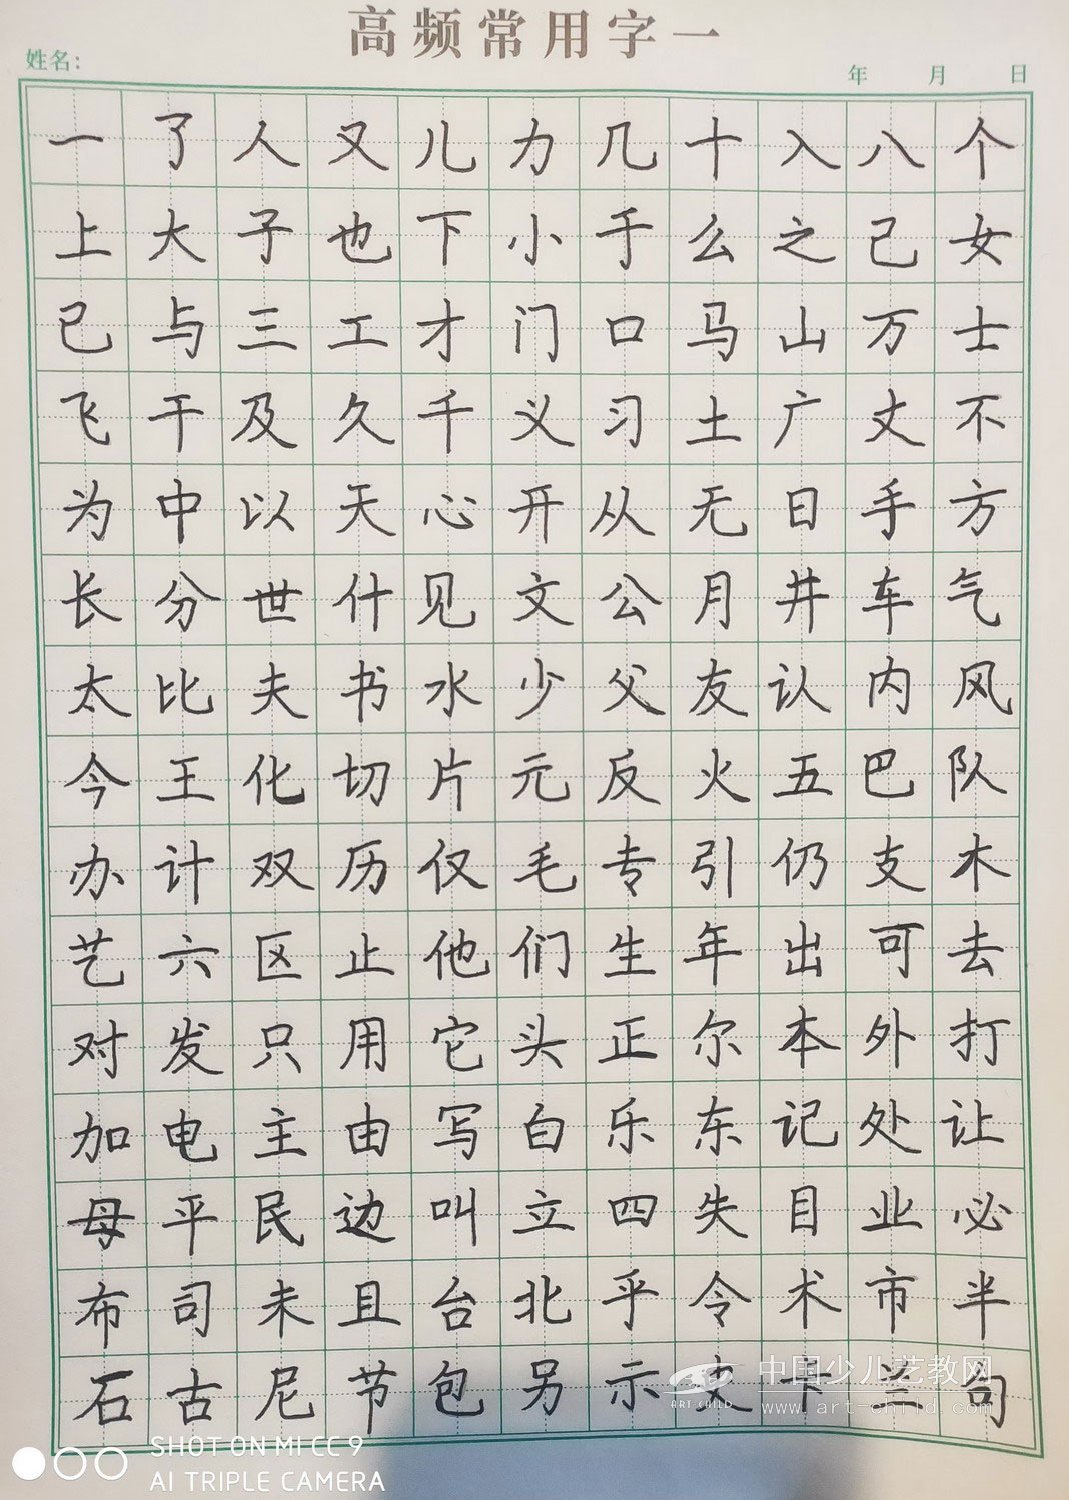 高频常用字一
姓名: 年 月 日
一了人又儿力几十入八个
上大子也下小于么之己女
已与三工才门口马山万士
飞干及久千义习土广丈不
为中以天心开从无日手方
长分世什见文公月井车气
太比夫书水少父友认内风
今王化切片元反火五巴队
办计双历仅毛专引仍支木
艺六区止他们生年出可去
对发只用它头正尔本外打
加电主由写白乐东记处让
母平民边叫立四失目业必
布司未且台北乎令术市半
石古尼节包另示皮卡兰句
中国少儿艺教网
ART CHILD www.art-child.com
SHOT ON MI CC 9
AI TRIPLE CAMERA